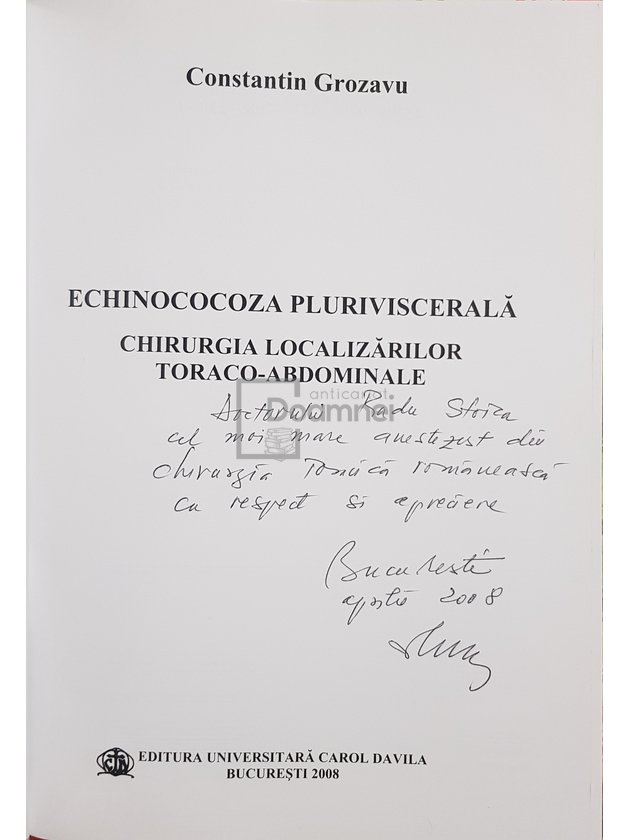 Constantin Grozavu
ECHINOCOCOZA PLURIVISCERALĂ
CHIRURGIA LOCALIZĂRILOR
TORACO-ABDOMINALE
anticariat
Doamnei
Doctorului Radu Stoica
cel mai mare anestezist din
chirurgia toracică românească
cu respect si apreciere
Bucuresti
aprilie 2008
EDITURA UNIVERSITARĂ CAROL DAVILA
BUCUREŞTI 2008